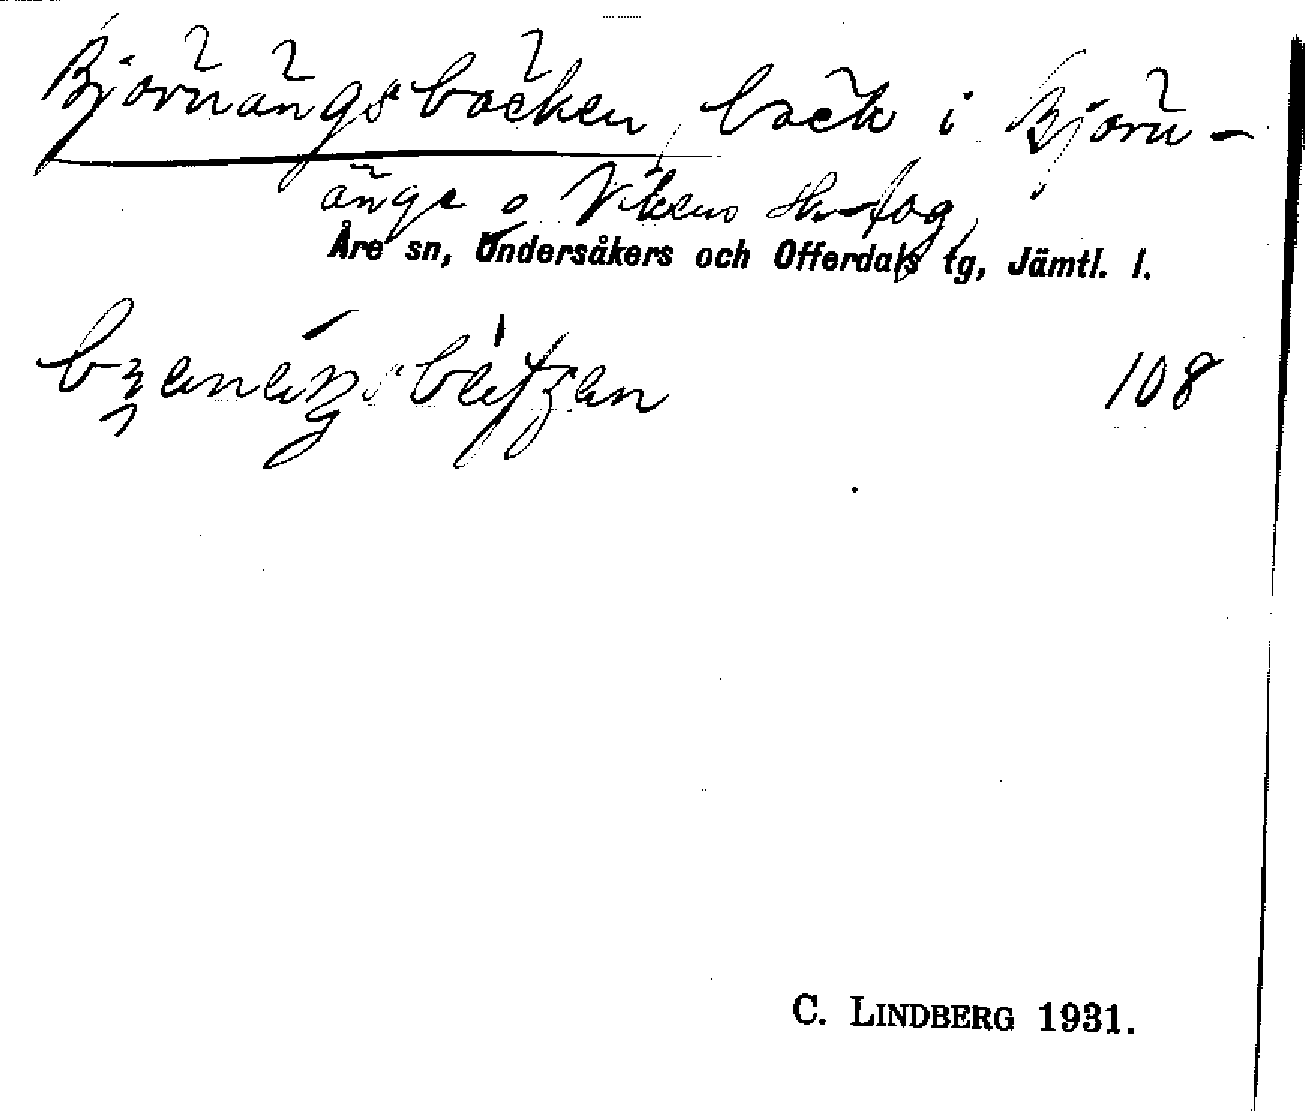 Björnängsbäcken, bäck i Björn-
änge o Vikens
Åre sn, Undersåkers och Offerdals tg, Jämtl. l.
108
C. LINDBERG 1931.